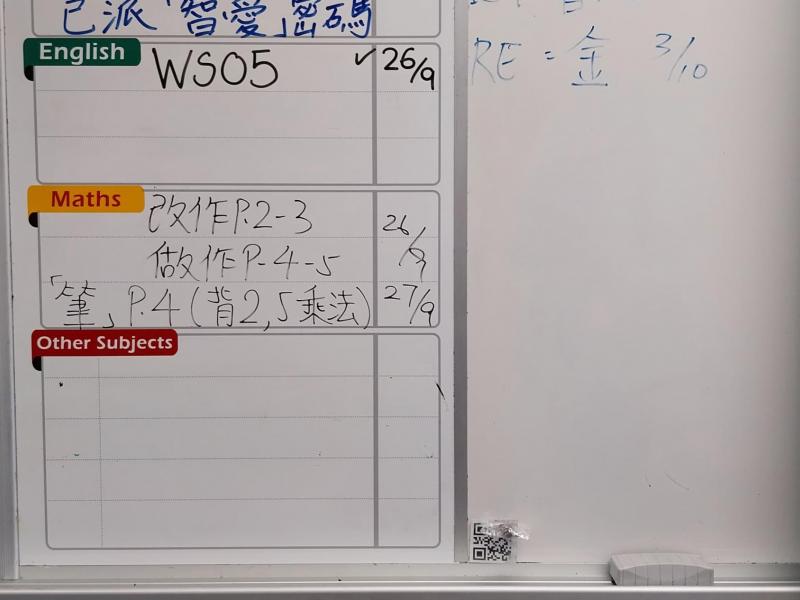 已派「智愛」密碼
English
WS05 ✓ 26/9
Maths
改作P.2-3 26/9
做作P.4-5
「筆」P.4 (背2,5乘法) 27/9
Other Subjects
RE = 金 3/10